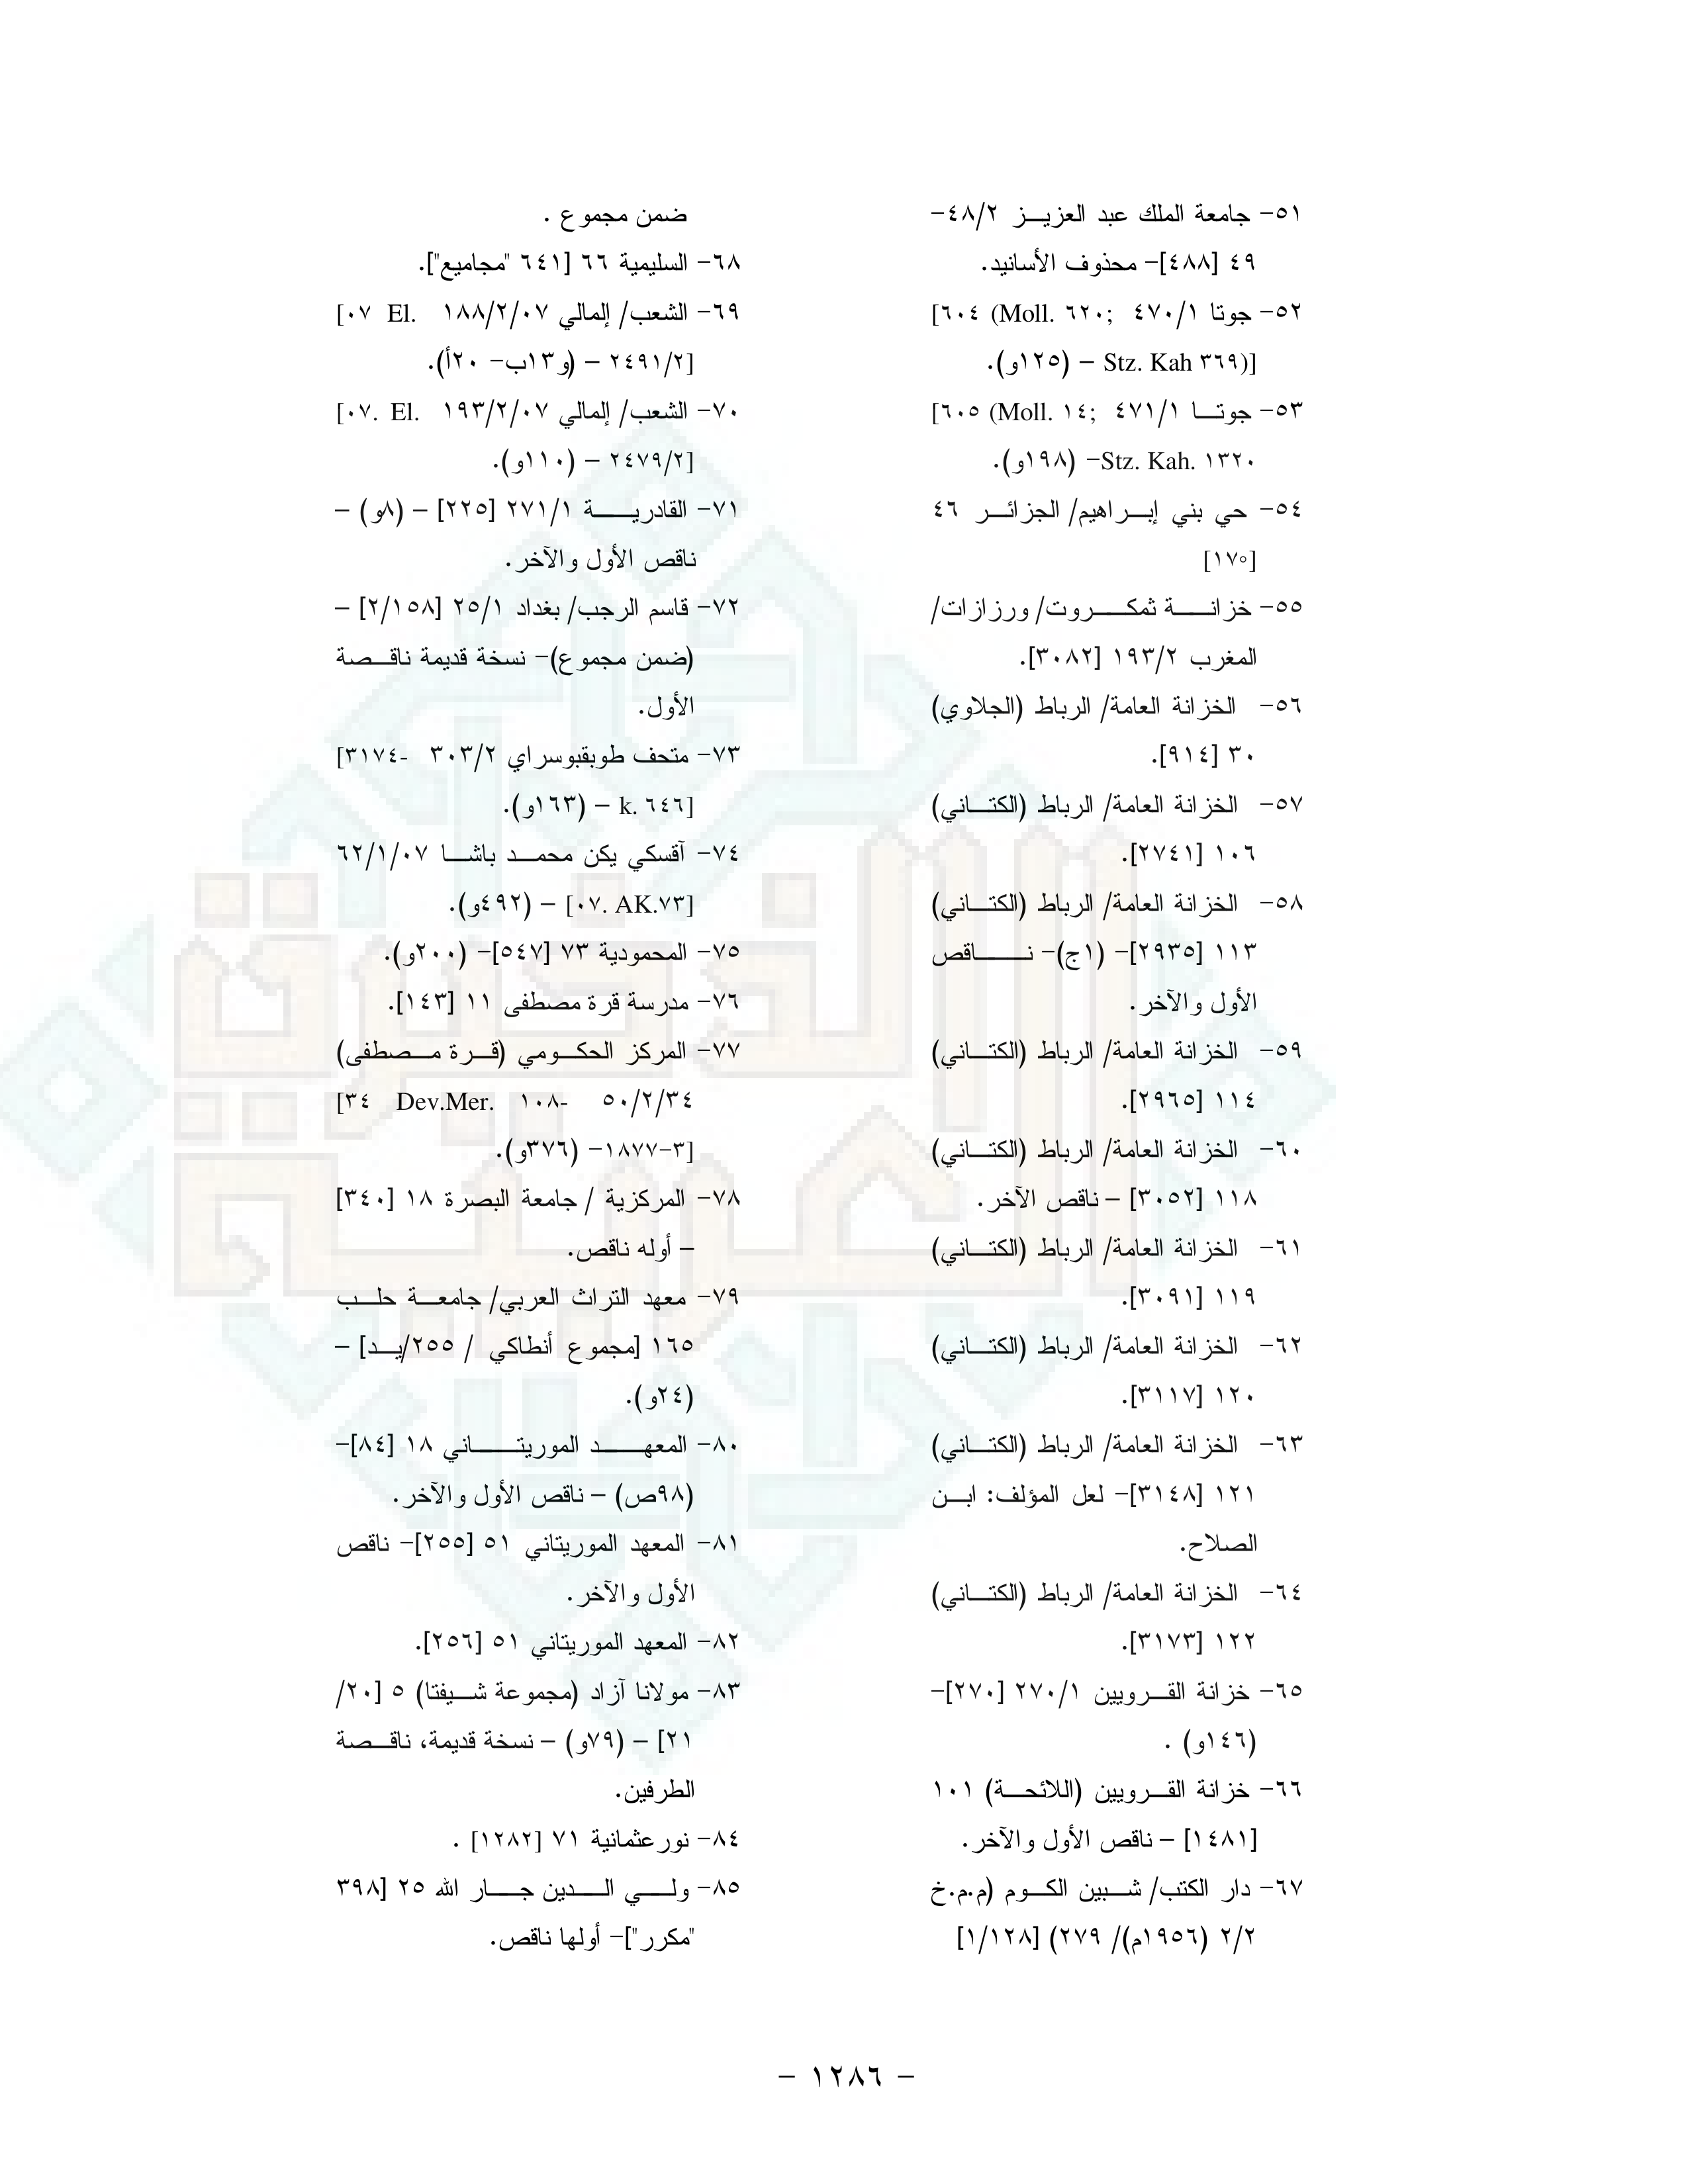 ٥١- جامعة الملك عبد العزيز ٤٨/٢-
٤٩ [٤٨٨]- محذوف الأسانيد.
٥٢- جوتا ٤٧٠/١ [٦٠٤ (Moll. ٦٢٠;
Stz. Kah ٣٦٩)] – (١٢٥و).
٥٣- جوتا ٤٧١/١ [٦٠٥ (Moll. ١٤;
Stz. Kah. ١٣٢٠- (١٩٨و).
٥٤- حي بني إبراهيم/ الجزائر ٤٦
[١٧°]
٥٥- خزانة ثمكروت/ ورزازات/
المغرب ١٩٣/٢ [٣٠٨٢].
٥٦- الخزانة العامة/ الرباط (الجلاوي)
٣٠ [٩١٤].
٥٧- الخزانة العامة/ الرباط (الكتاني)
١٠٦ [٢٧٤١].
٥٨- الخزانة العامة/ الرباط (الكتاني)
١١٣ [٢٩٣٥]- (١ج)- ناقص
الأول والآخر.
٥٩- الخزانة العامة/ الرباط (الكتاني)
١١٤ [٢٩٦٥].
٦٠- الخزانة العامة/ الرباط (الكتاني)
١١٨ [٣٠٥٢] – ناقص الآخر.
٦١- الخزانة العامة/ الرباط (الكتاني)
١١٩ [٣٠٩١].
٦٢- الخزانة العامة/ الرباط (الكتاني)
١٢٠ [٣١١٧].
٦٣- الخزانة العامة/ الرباط (الكتاني)
١٢١ [٣١٤٨]- لعل المؤلف: ابن
الصلاح.
٦٤- الخزانة العامة/ الرباط (الكتاني)
١٢٢ [٣١٧٣].
٦٥- خزانة القرويين ٢٧٠/١ [٢٧٠]-
(١٤٦و) .
٦٦- خزانة القرويين (اللائحة) ١٠١
[١٤٨١] – ناقص الأول والآخر.
٦٧- دار الكتب/ شبين الكوم (م.م.خ
٢/٢ (١٩٥٦م)/ ٢٧٩) [١/١٢٨]
ضمن مجموع .
٦٨- السليمية ٦٦ [٦٤١ "مجاميع"].
٦٩- الشعب/ إلمالي ١٨٨/٢/٠٧ [٠٧ El.
٢٤٩١/٢] – (و١٣ب- ٢٠أ).
٧٠- الشعب/ إلمالي ١٩٣/٢/٠٧ [٠٧. El.
٢٤٧٩/٢] – (١١٠و).
٧١- القادرية ٢٧١/١ [٢٢٥] – (٨و) –
ناقص الأول والآخر.
٧٢- قاسم الرجب/ بغداد ٢٥/١ [٢/١٥٨] –
(ضمن مجموع)- نسخة قديمة ناقصة
الأول.
٧٣- متحف طوبقبوسراي ٣٠٣/٢ [٣١٧٤-
k. ٦٤٦] – (١٦٣و).
٧٤- آقسكي يكن محمد باشا ٦٢/١/٠٧
[٠٧. AK.٧٣] – (٤٩٢و).
٧٥- المحمودية ٧٣ [٥٤٧]- (٢٠٠و).
٧٦- مدرسة قرة مصطفى ١١ [١٤٣].
٧٧- المركز الحكومي (قرة مصطفى)
٥٠/٢/٣٤ [٣٤ Dev.Mer. ١٠٨-
٣-١٨٧٧]- (٣٧٦و).
٧٨- المركزية / جامعة البصرة ١٨ [٣٤٠]
– أوله ناقص.
٧٩- معهد التراث العربي/ جامعة حلب
١٦٥ [مجموع أنطاكي / ٢٥٥/يد] –
(٢٤و).
٨٠- المعهد الموريتاني ١٨ [٨٤]-
(٩٨ص) – ناقص الأول والآخر.
٨١- المعهد الموريتاني ٥١ [٢٥٥]- ناقص
الأول والآخر.
٨٢- المعهد الموريتاني ٥١ [٢٥٦].
٨٣- مولانا آزاد (مجموعة شيفتا) ٥ [٢٠/
٢١] – (٧٩و) – نسخة قديمة، ناقصة
الطرفين.
٨٤- نورعثمانية ٧١ [١٢٨٢] .
٨٥- ولي الدين جار الله ٢٥ [٣٩٨
"مكرر"]- أولها ناقص.
- ١٢٨٦ -